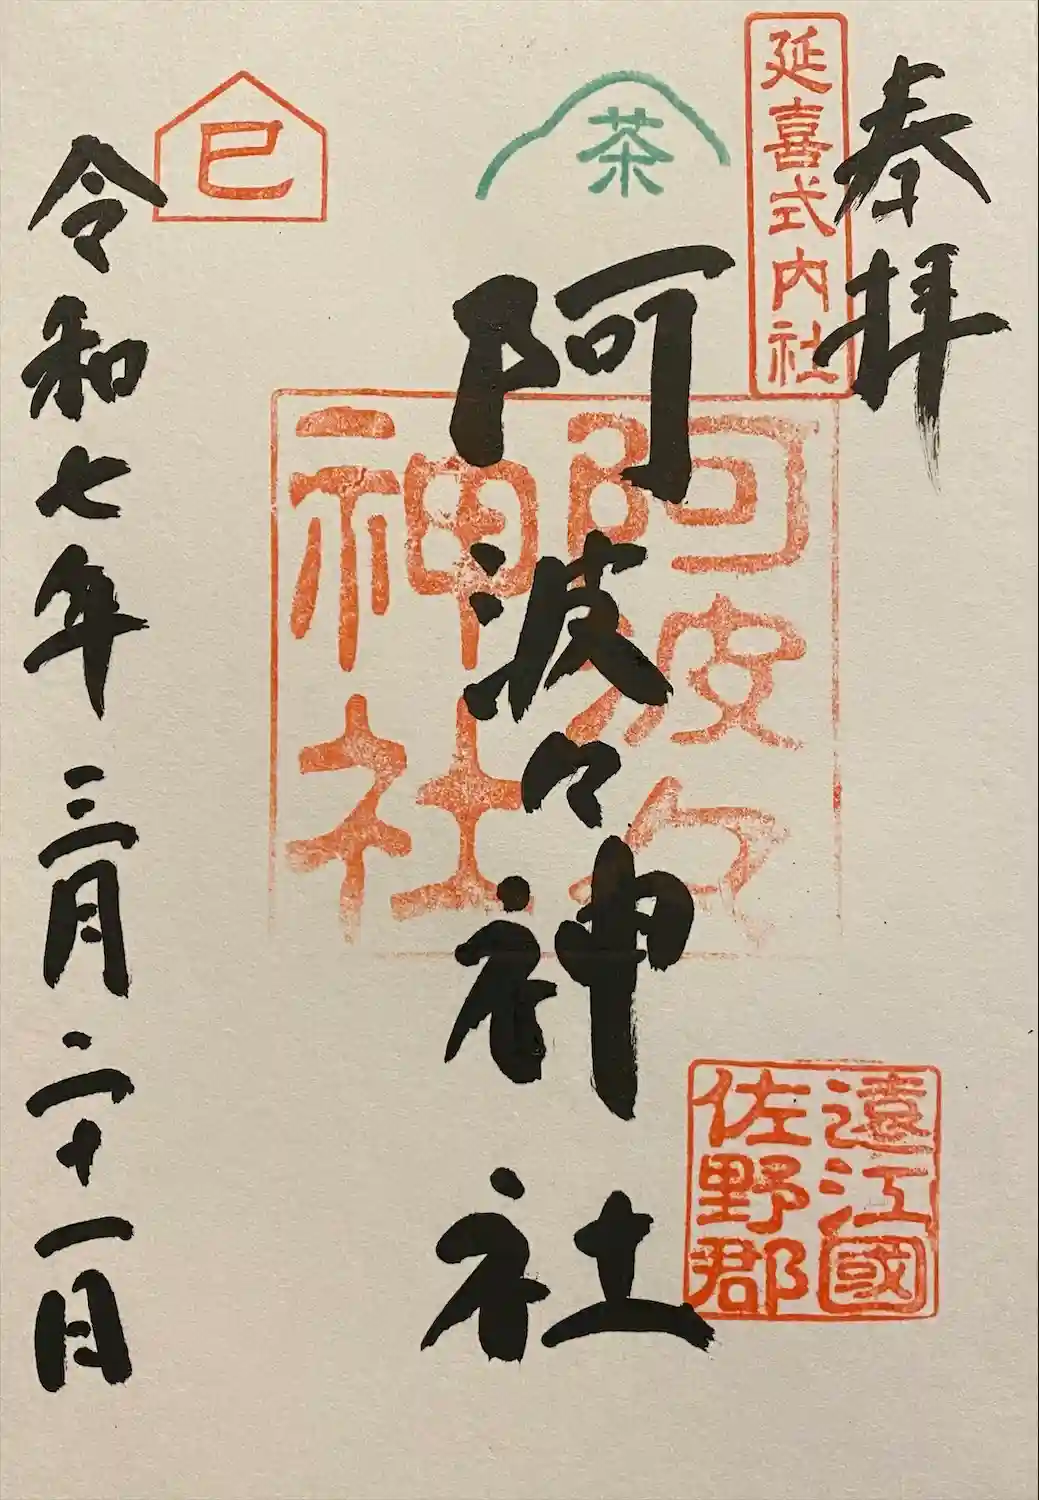 奉拝
延喜式内社
茶
阿波々神社
阿波々
神社
遠江國
佐野郡
巳
令和七年三月二十一日